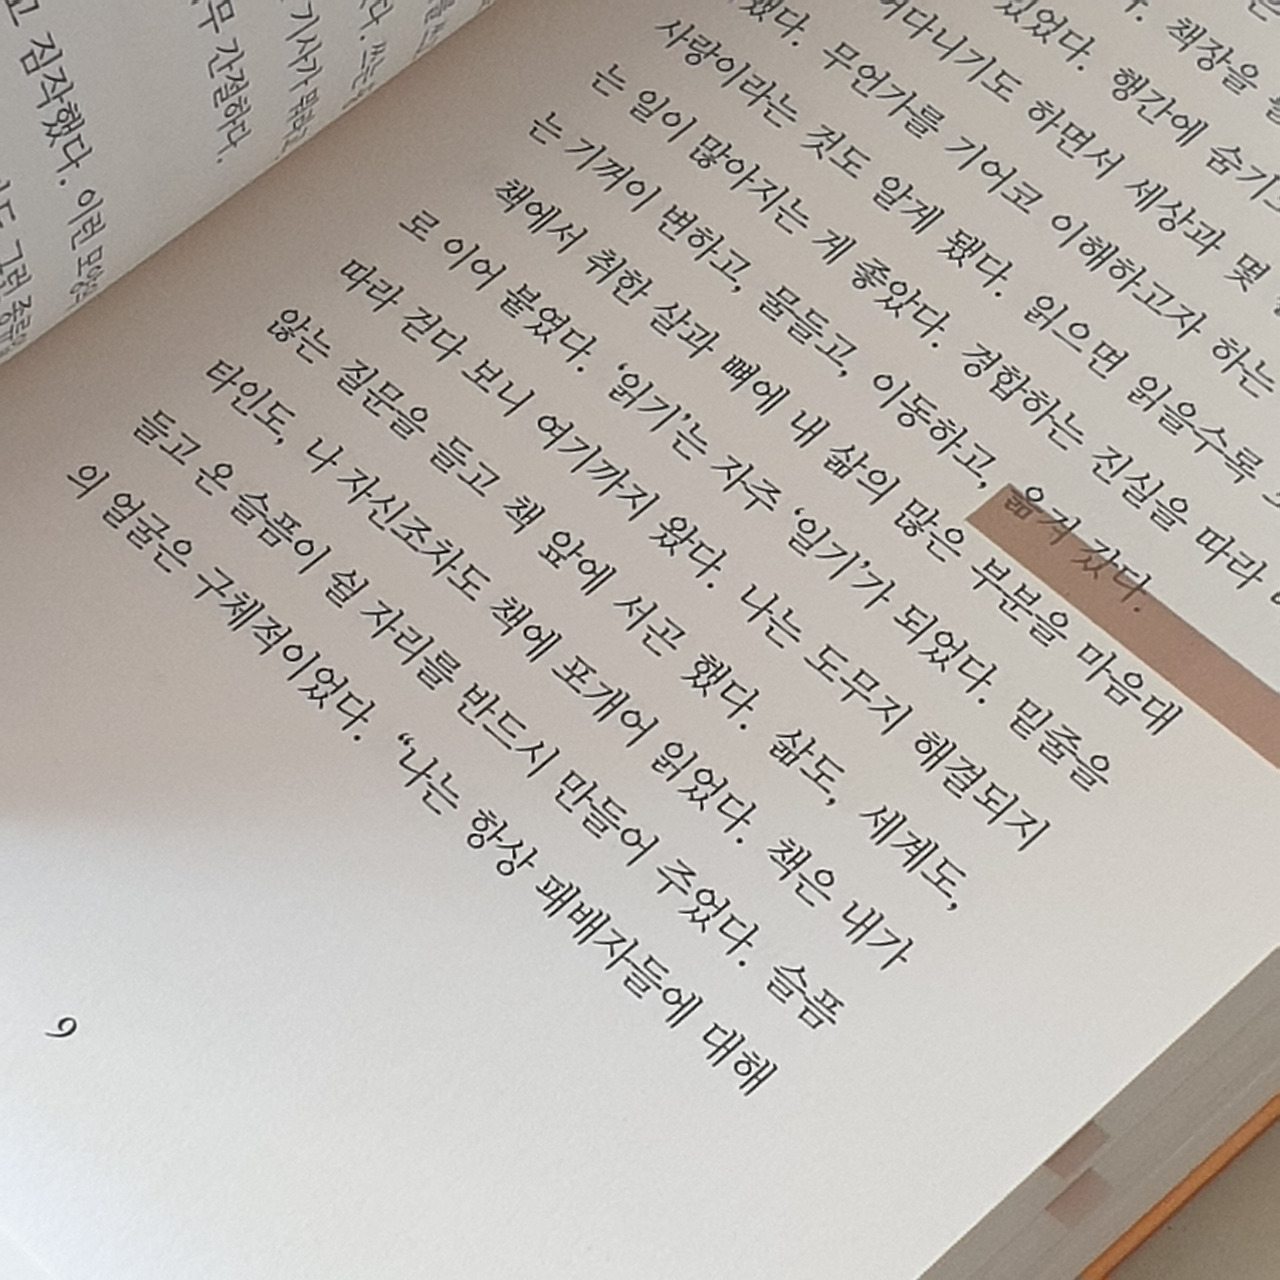 짐작했다. 이런
간절하다.
기사가
책장을
있었다. 행간에
하면서 세상과 몇
무언가를 기어코 이해하고자 하는
사랑이라는 것도 알게 됐다. 읽으면 읽을수록
는 일이 많아지는 게 좋았다. 경합하는 진실을 따라
는 기꺼이 변하고, 물들고, 이동하고, 옮겨 갔다.
책에서 취한 살과 뼈에 내 삶의 많은 부분을 마음대
로 이어 붙였다. ‘읽기’는 자주 ‘일기’가 되었다. 밑줄을
따라 걷다 보니 여기까지 왔다. 나는 도무지 해결되지
않는 질문을 들고 책 앞에 서곤 했다. 삶도, 세계도,
타인도, 나 자신조차도 책에 포개어 읽었다. 책은 내가
들고 온 슬픔이 쉴 자리를 반드시 만들어 주었다. 슬픔
의 얼굴은 구체적이었다. “나는 항상 패배자들에 대해
9